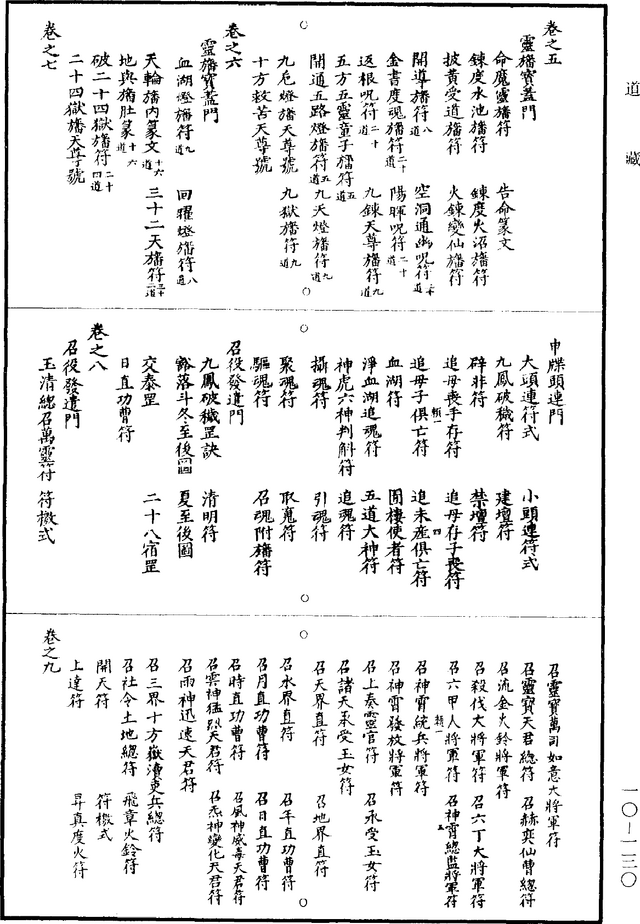 道藏
卷之五
靈旛寶蓋門
命魔靈旛符　告命篆文
鍊度水池旛符　鍊度火沼旛符
披黃受道旛符　火鍊變仙旛符
開導旛符八道　空洞通幽呪符二十道
金書度魂旛符二十道　陽暉呪符二十道
返根呪符二十道　九鍊天尊旛符九道
五方五靈童子旛符五道
開通五路燈旛符五道　九天燈旛符九道
九卮燈旛天尊號　九獄旛符九道
十方救苦天尊號
卷之六
靈旛寶蓋門
血湖燈旛符九道　回耀燈旛符八道
天輪旛內篆文十六道　三十二天旛符三十二道
地輿旛肚篆十六道
破二十四獄旛符二十四道
二十四獄旛天尊號
卷之七
申牒頭連門
大頭連符式　小頭連符式
九鳳破穢符　建壇符
辟非符　禁壇符
追母喪子存符頪一　追母存子喪符
追母子俱亡符　追未産俱亡符四
血湖符　圊棲使者符
淨血湖追魂符　五道大神符
神虎六神判斛符　追魂符
攝魂符　引魂符
聚魂符　取䰟符
驅魂符　召魂附旛符
召役發遣門
九鳳破穢罡訣　清明符
豁落斗冬至後圖　夏至後圖
交泰罡　二十八宿罡
日直功曹符
卷之八
召役發遣門
玉清總召萬靈符　符檄式
召靈寶萬司如意大將軍符
召靈寶天君總符　召赫奕仙曹總符
召流金火鈴將軍符
召殺伐大將軍符　召六丁大將軍符
召六甲人將軍符頪一　召神霄總監將軍符五
召神霄統兵將軍符
召神霄發放將軍符
召上奏靈官符　召承受玉女符
召諸天承受玉女符
召天界直符　召地界直符
召水界直符　召年直功曹符
召月直功曹符　召日直功曹符
召時直功曹符　召風神威毒天君符
召雲神猛烈天君符　召炁神變化天君符
召雨神迅速天君符
召三界十方嶽瀆吏兵總符
召社令土地總符　飛章火鈴符
開天符　符檄式
上達符　昇真度火符
卷之九
一〇—一三〇